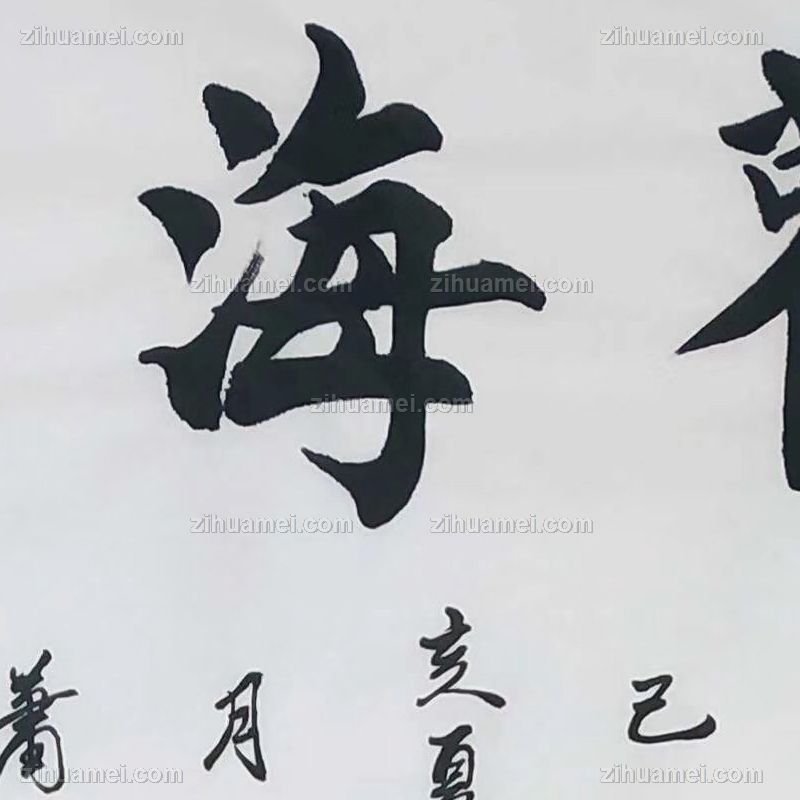 海
己
亥夏
月
萧
zihuamei.com
zihuamei.com
zihuamei.com
zihuamei.com
zihuamei.com
zihuamei.com
zihuamei.com
zihuamei.com
zihuamei.com